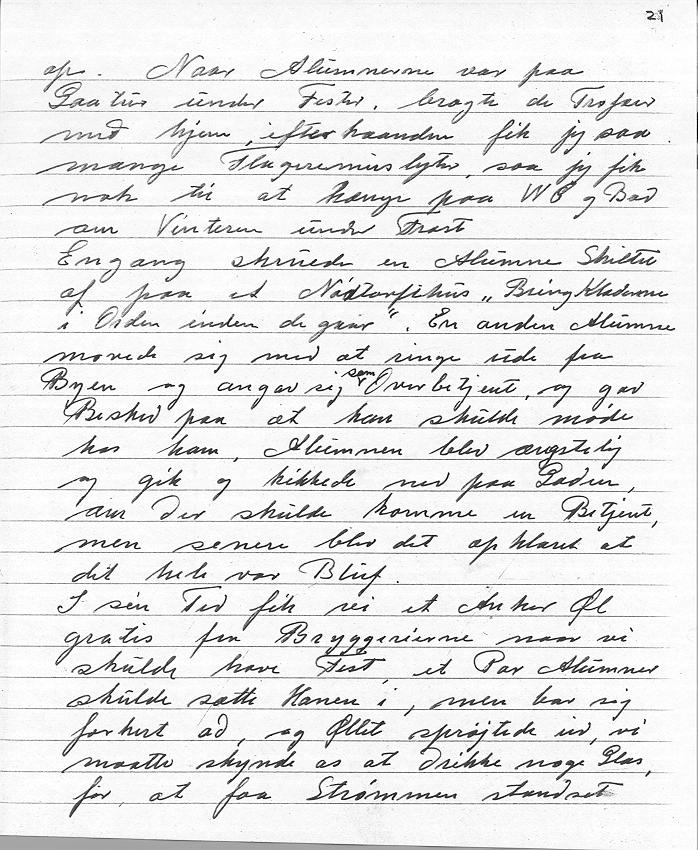 21
op. Naar Alumnerne var paa
Gaatur under Fester, bragte de Trofæer
med hjem, efterhaanden fik jeg saa
mange Flagermuslygter, saa jeg fik
nok til at hænge paa WC og Bad
om Vinteren under Frost
Engang skruede en Alumne Skiltet
af paa et Nødtørftshus „Bring Klæderne
i Orden inden de gaar“. En anden Alumne
morede sig med at ringe ude fra
Byen og angav sig som Overbetjent, og gav
Besked paa at han skulde møde
hos ham, Alumnen blev ængstelig
og gik og kikkede ned paa Gaden,
om der skulde komme en Betjent,
men senere blev det opklaret at
det hele var Bluf.
I sén Tid fik vi et Anker Øl
gratis fra Bryggerierne naar vi
skulde have Fest, et Par Alumner
skulde sætte Hanen i, men bar sig
forkert ad, og Øllet sprøjtede ud, vi
maatte skynde os at drikke nogle Glas,
for at faa Strømmen standset